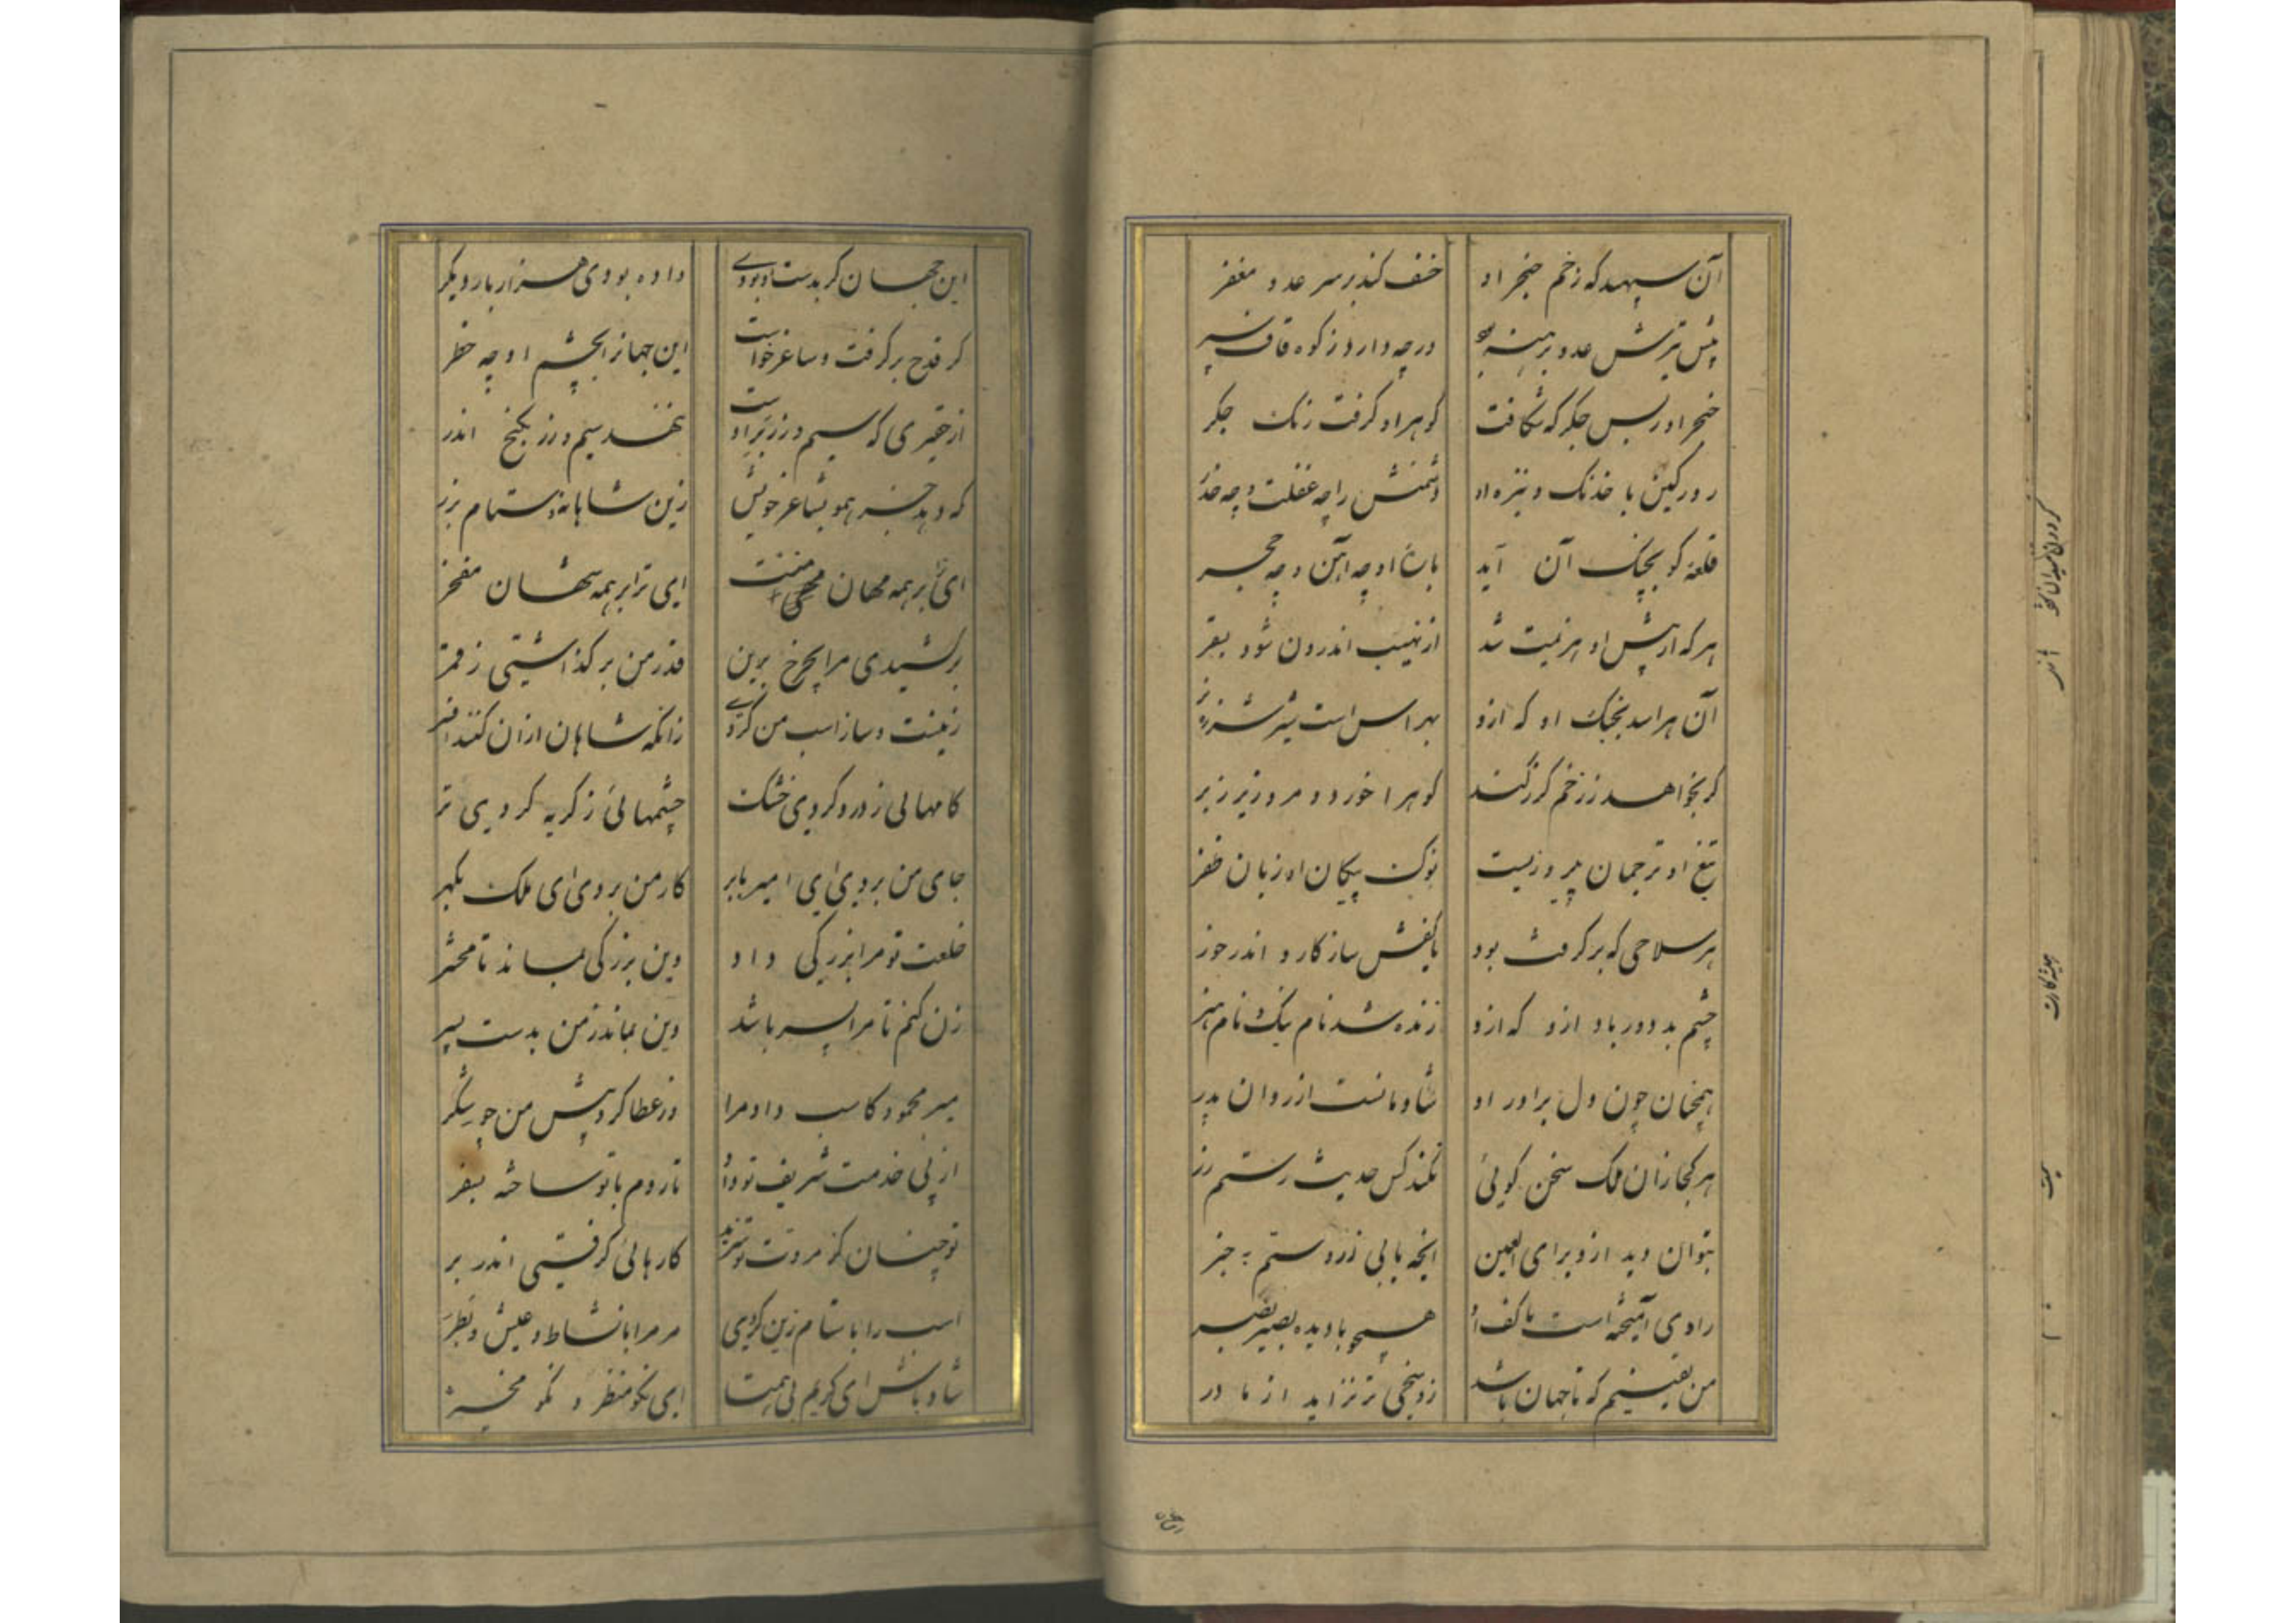 آن سپهبد که زخم خنجر او    خسف کند بر سر عدو مغفر
پیش تیرش عدو برهنه    درچه دارد ز کوه قاف سپر
خنجر او ز بس جگر که شکافت    گوهر او گرفت رنگ جگر
روز کین با خدنگ و نیزه او    دشمنش را چه غفلت و چه حذر
قلعه کو بجنگ آن آید    باره او چه آهن و چه حجر
هر که از پیش او هزیمت شد    از نهیب اندرون شود بسقر
آن هراسد بجنگ او که ازو    بهراس است شیر شرزه نر
گر بخواهد ز زخم گرز کند    کوه را خورد و مرد زیر زبر
تیغ او ترجمان پیروزیست    نوک پیکان او زبان ظفر
هر سلاحی که بر گرفت بود    با کفش سازگار و اندرخور
چشم بد دور باد ازو که ازو    زنده شد نام نیک و نام هنر
همچنان چون دل برادر او    شادمانست ازو روان پدر
هر کجا زان ملک سخن گوئی    نکند کس حدیث رستم زر
بتوان دید ازو برای العین    آنچه یابی ز رستم به خبر
رادی آمیخته است با کف او    همچو با دیده بصیر بصر
من یقینم که تا جهان باشد    زو سخی تر نزاید از مادر
این جهان گر بدست او بودی    داده بودی هزار بار دیگر
گر قدح بر گرفت و ساغر خواست    این جهانرا بچشم او چه خطر
از حقیری که سیم و زر بر اوست    ننهد سیم و زر بگنج اندر
که دهد جز همو بشاعر خویش    زین شاهانه و ستام بزر
ای بر همه مهان منت    ای ترا بر همه شهان مفخر
برکشیدی مرا بچرخ برین    قدر من بر گذاشتی ز قمر
زینت و ساز اسب من کردی    زانکه شاهان ازان کنند افسر
کامهائی ز درد کردی خشک    چشمهائی ز گریه کردی تر
جای من بردی ای امیر بابر    کار من بردی ای ملک بگهر
خلعت تو مرا بزرگی داد    وین بزرگی بماند تا محشر
زن کنم تا مرا پسر باشد    وین بماند ز من بدست پسر
میر محمود کاسب داد مرا    وز عطا کرد پیش من چو شکر
از پی خدمت شریف تو داد    تا روم با تو ساخته بسفر
تو چنان کز مروت تو سزید    کارهائی گرفتی اندر بر
اسب را با ستام زین کردی    مر مرا با نشاط و عیش و بطر
شاد باش ای کریم بی همتا    ای نکو منظر و نکو مخبر